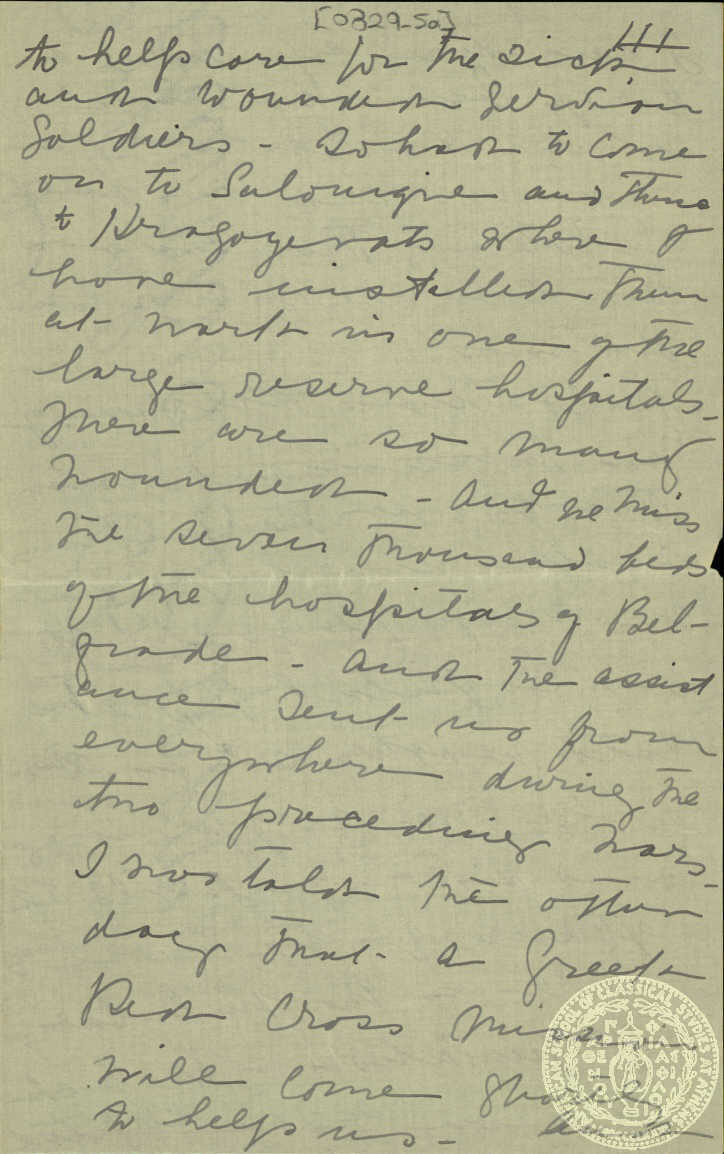 [0329-50]
III
to help care for the sick
and wounded Servian
Soldiers - So had to come
on to Salonique and thence
to Kragoyevats where I
have installed them
at work in one of the
large reserve hospitals -
There are so many
wounded - And we miss
the seven thousand beds
of the hospitals of Bel-
grade - And the assist
ance sent us from
everywhere during the
two preceding wars -
I was told the other
day that a Greek
Red Cross Mission
will come shortly
to help us -